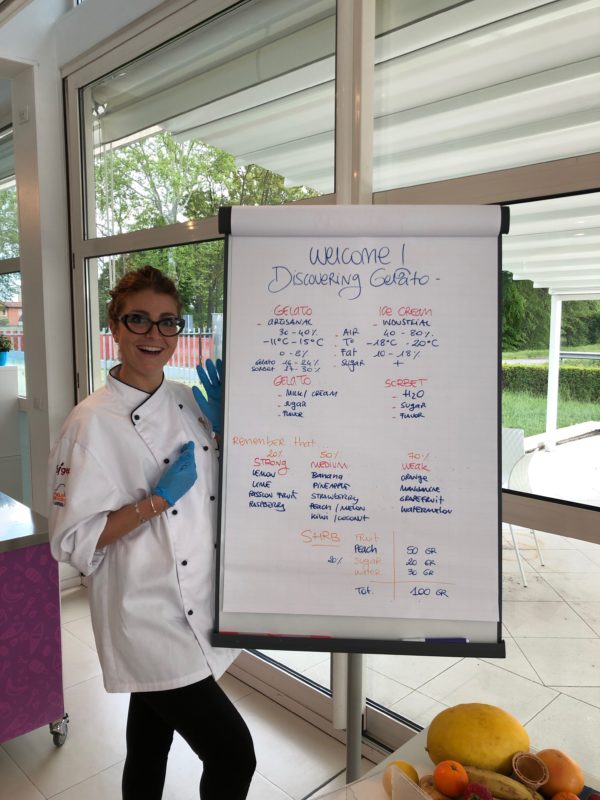 Welcome!
Discovering Gelato -
GELATO ICE CREAM
- ARTISANAL - INDUSTRIAL
30 - 40% - AIR 40 - 80%
-11°C -15°C - T° -18°C -20°C
0 - 8% - Fat 10 - 18%
GELATO 16 - 24% - SUGAR +
SORBET 27 - 30%
GELATO SORBET
- MILK / CREAM - H2O
- SUGAR - SUGAR
- FLAVOR - FLAVOR
Remember that...
20% 50% 70%
STRONG MEDIUM WEAK
LEMON BANANA ORANGE
LIME PINEAPPLE MANDARINE
PASSION FRUIT STRAWBERRY GRAPEFRUIT
RASPBERRY PEACH / MELON WATERMELON
KIWI / COCONUT
S+RB FRUIT
PEACH 50 GR
20% SUGAR 20 GR
WATER 30 GR
TOT. 100 GR